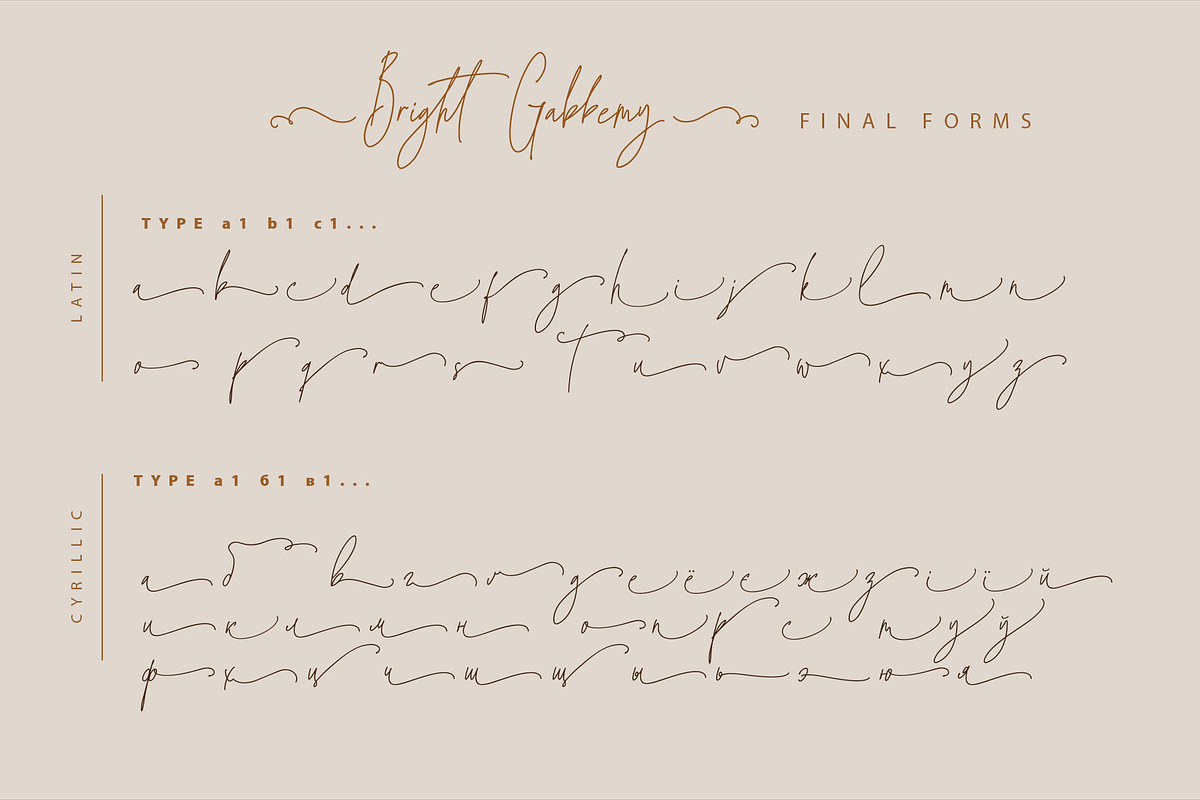 Bright Gabbemy FINAL FORMS
LATIN
TYPE a1 b1 c1...
a b c d e f g h i j k l m n
o p q r s t u v w x y z
CYRILLIC
TYPE а1 б1 в1...
а б в г д е ё є ж з і ї й
и к л м н о п р с т у ў
ф х ц ч ш щ ы ь э ю я